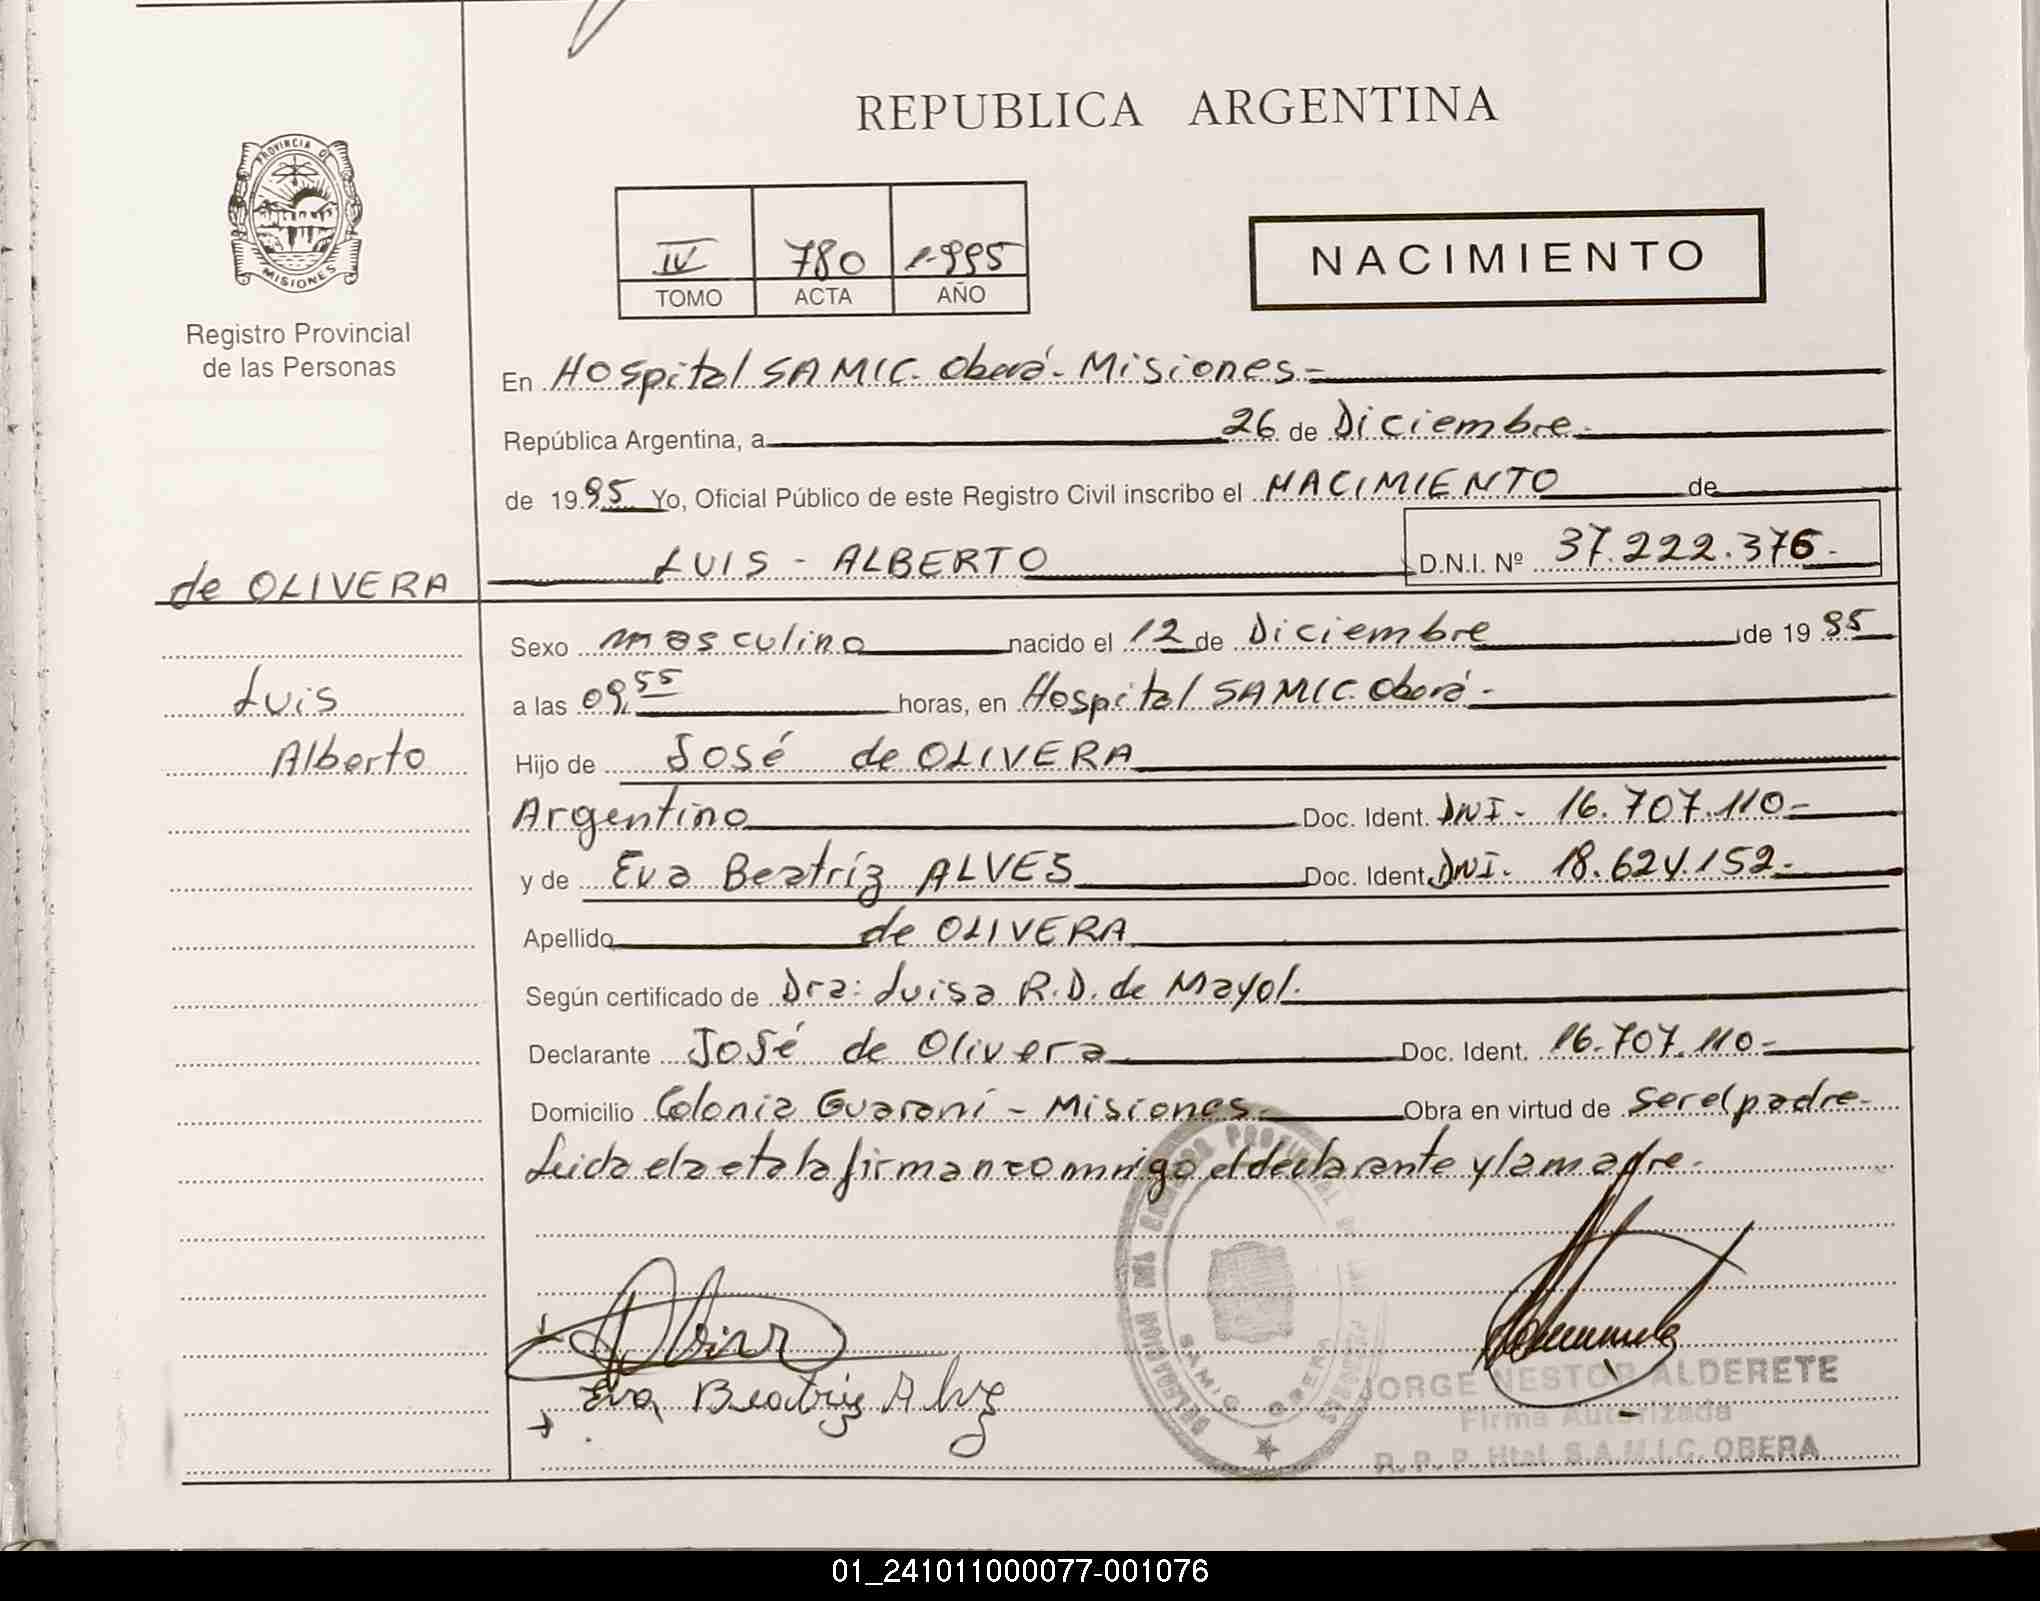 REPUBLICA ARGENTINA
PROVINCIA D
MISIONES
Registro Provincial
de las Personas
IV 780 1.995
TOMO ACTA AÑO
NACIMIENTO
En Hospital SAMIC. Oberá - Misiones -
República Argentina, a 26 de Diciembre
de 1995 Yo, Oficial Público de este Registro Civil inscribo el NACIMIENTO de
de OLIVERA LUIS - ALBERTO D.N.I. Nº 37.222.376.-
Sexo masculino nacido el 12 de Diciembre de 1995
Luis a las 09,55 horas, en Hospital SAMIC. Oberá -
Alberto Hijo de José de OLIVERA
Argentino Doc. Ident. DNI - 16.707.110 -
y de Eva Beatríz ALVES Doc. Ident. DNI. 18.624.152 -
Apellido de OLIVERA
Según certificado de Dra: Luisa R.D. de Mayol.
Declarante José de Olivera Doc. Ident. 16.707.110 -
Domicilio Colonia Guaraní - Misiones - Obra en virtud de ser el padre -
Leida el acta la firman conmigo el declarante y la madre -
Eva Beatriz Alvez
SAMIC OBERA
JORGE NESTOR ALDERETE
Firma Autorizada
R. P. P. Htal. S.A.M.I.C. OBERA
01_241011000077-001076